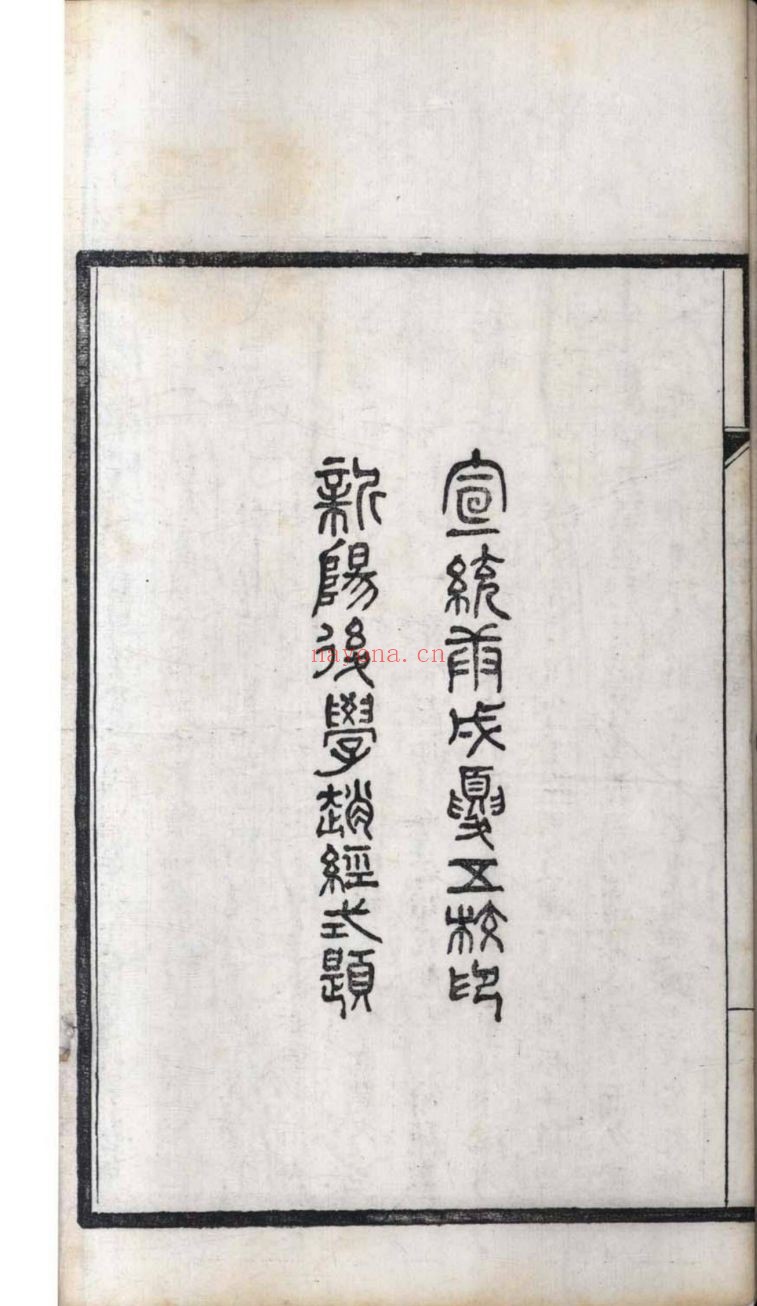 宣統庚戌夏五校印
新陽後學趙經式題
nayona.cn